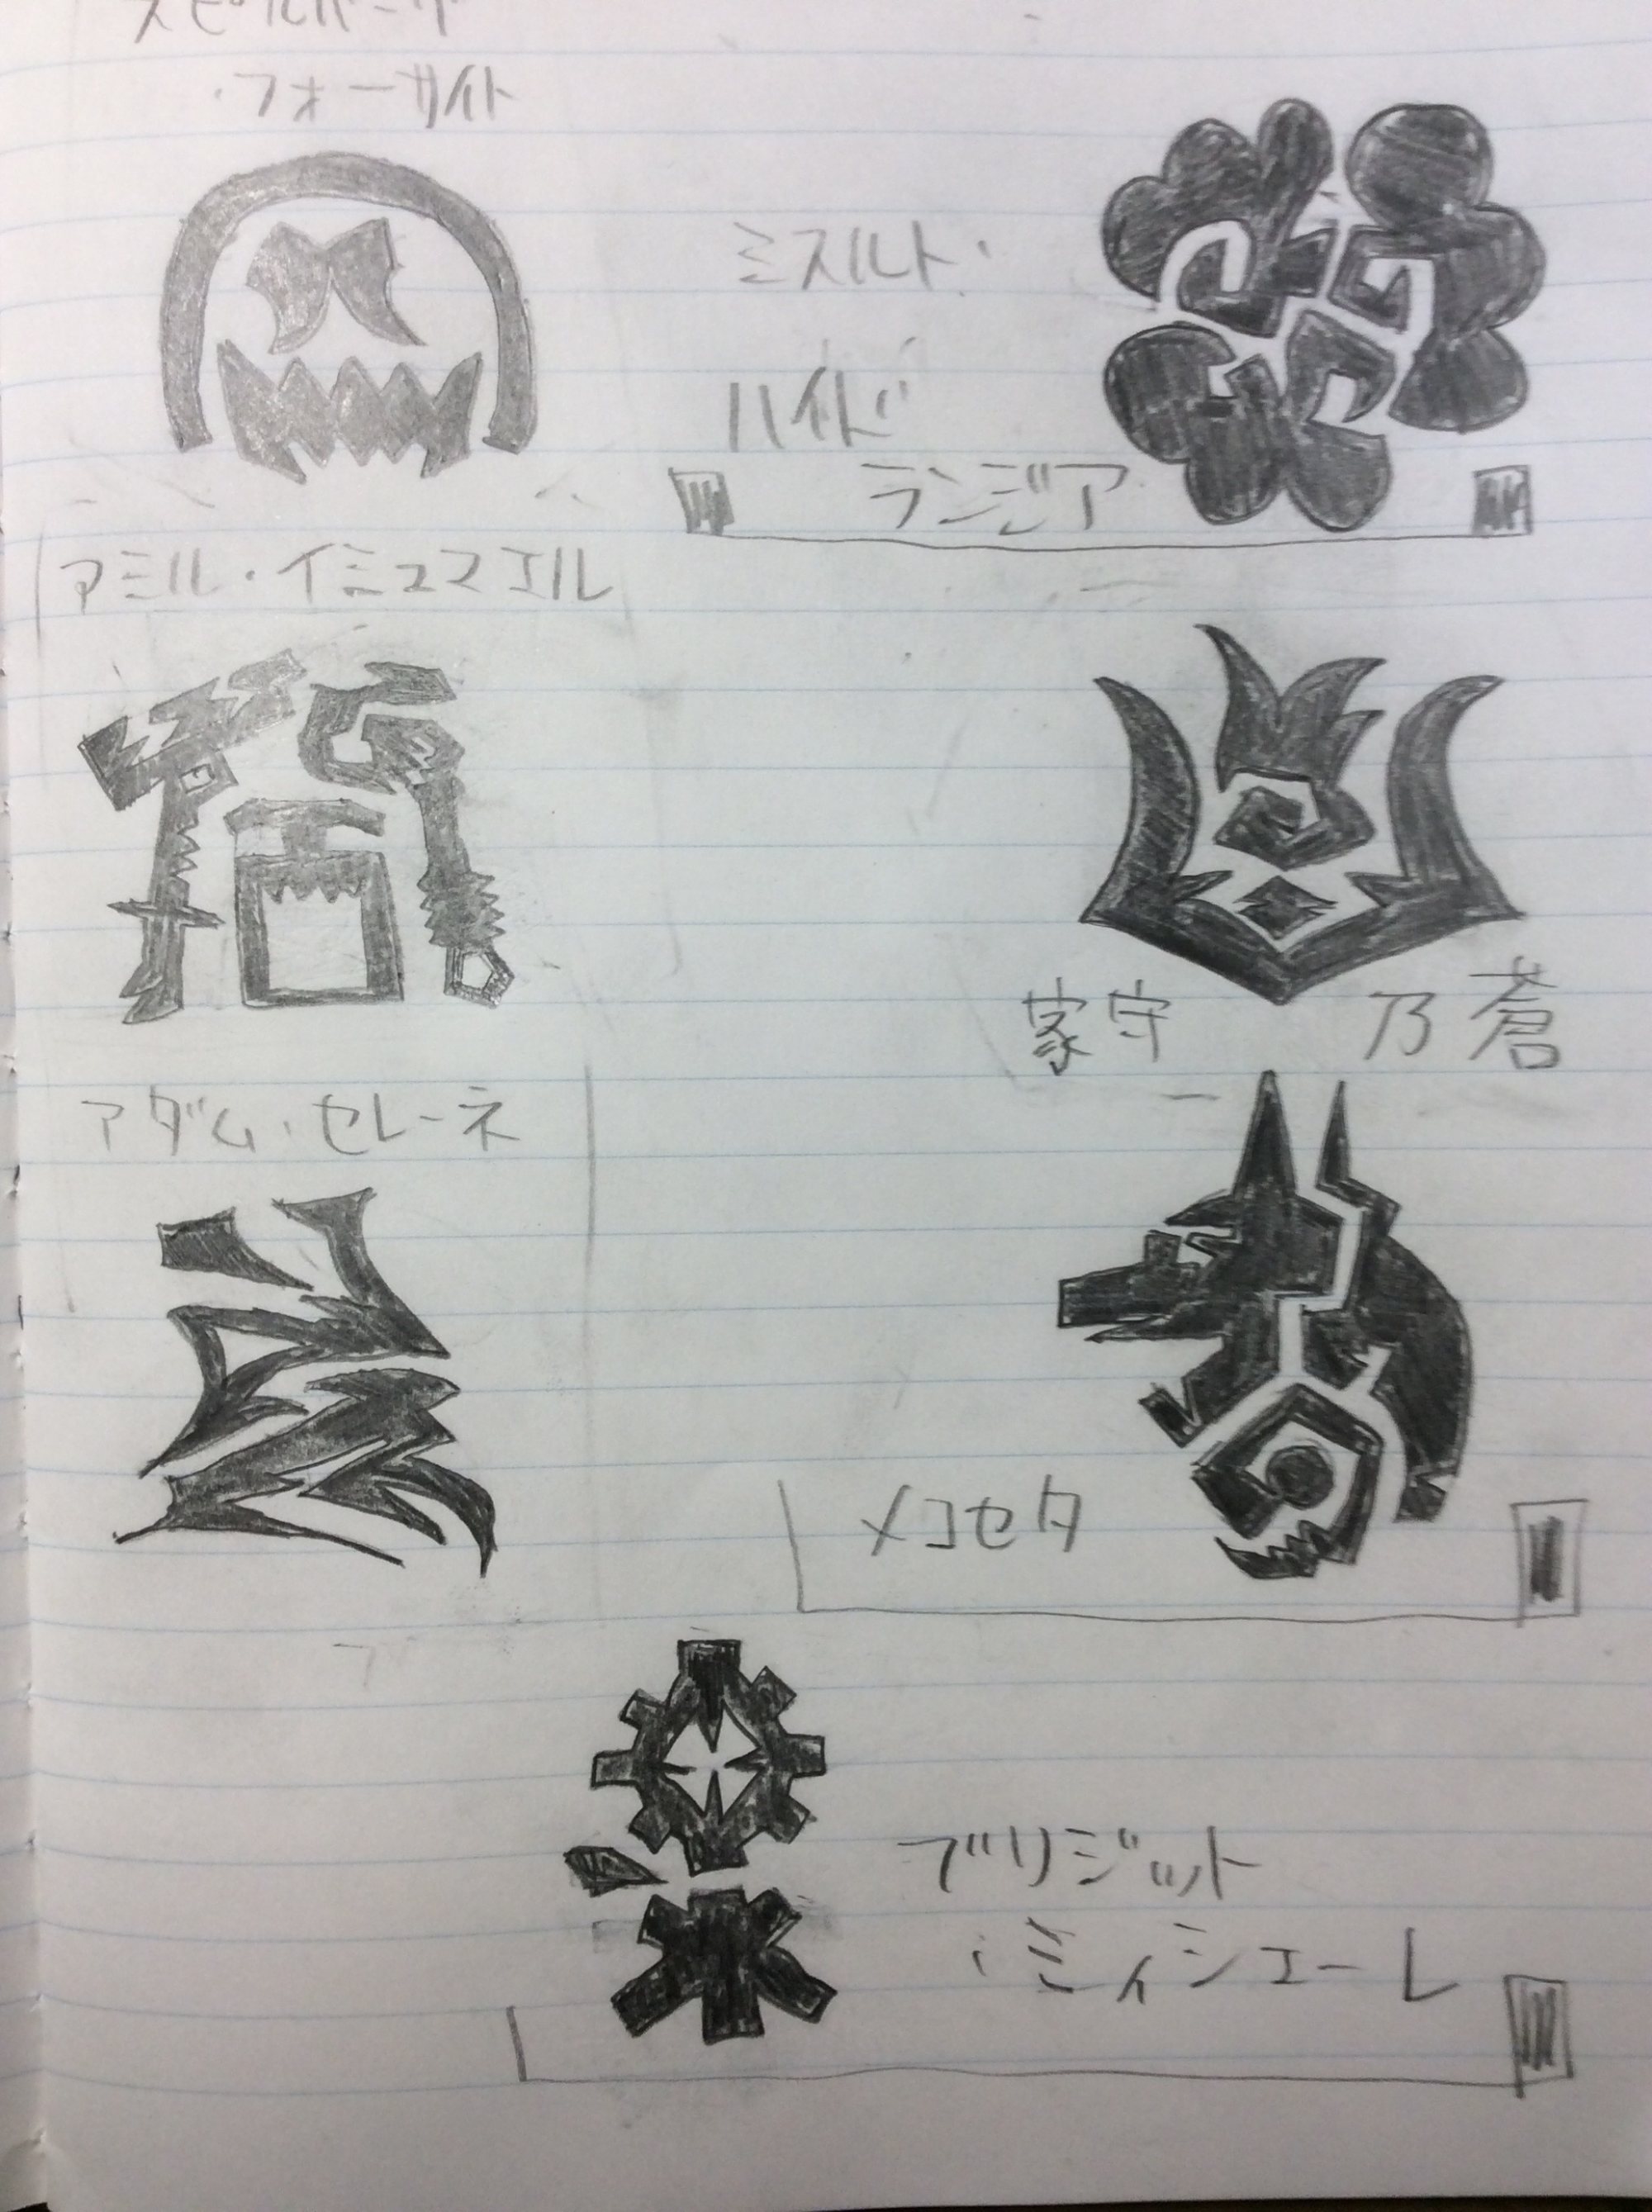 スピルバーグ
・フォーサイト
ミスルト・
ハイド
ランジア
アミル・イミュマエル
家守 乃蒼
アダム・セレーネ
メコセタ
ブリジット
・ミィシェーレ